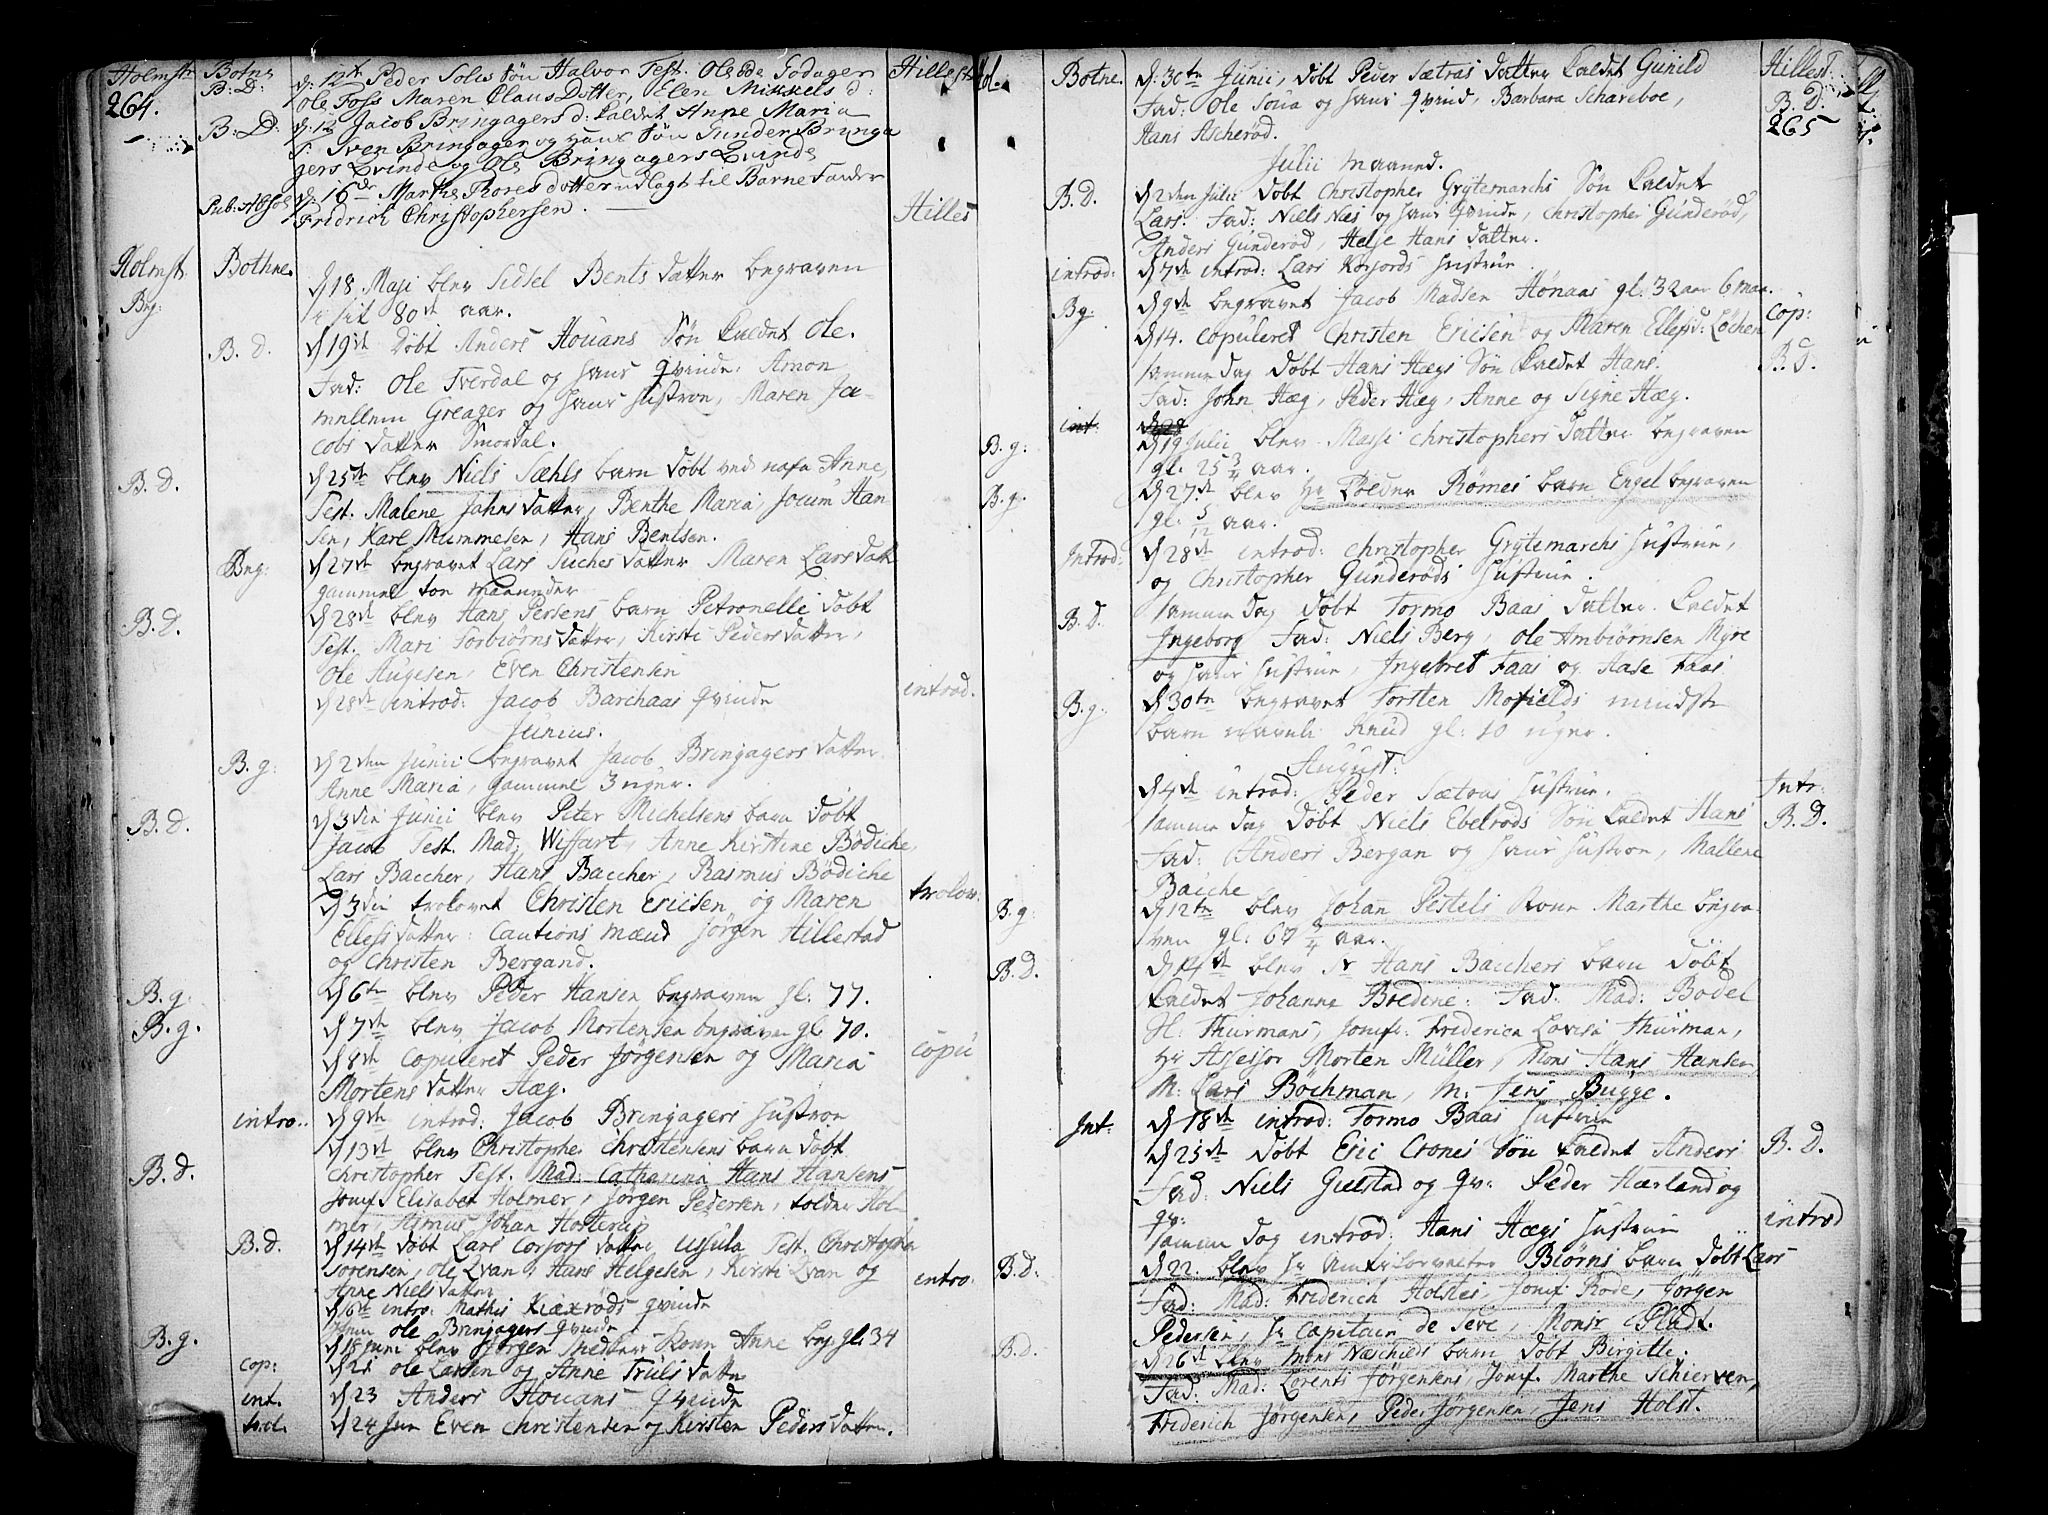 Holmst. Botne Hillest.
264.
B: D: d: 12te Peder Solis Søn Halvor Test. Ols
Ole Foss Maren ClausDotter, Elen Mikkels d:
B: D: d: 12 Jacob Bringagers d: kaldet Anne Maria
T. Sven Bringager og hans Søn Gunder Bringa
gers Qvinde og Ole Bringagers Qvinde
Pub: Absol d: 16de Marthe Thoresdotter udlagt til Barne Fader
Fridrich Christophersen. Hilles
Holmst. Bothne.
Beg: d 18 Maji blev Sidsel Bents datter begraven
i sit 80de aar.
B. d. d 19de Døbt Anders Houans Søn kaldet Ole.
Fad: Ole Tverdal og hans qvinde, Amon
mellem Greager og hans hustroe, Maren Ja-
cobs datter Smördal.
B. D. d 25de blev Niels Sæhls barn døbt ved nafn Anne,
Test. Malene Jahns datter, Benthe Maria, Jocum Han-
sen, Karl Mummesen, Hans Bentsen.
Beg: d 27de begravet Lars Suches datter Maren Lars datter
gammel ton maaneder
B. D. d 28de blev Hans Persens barn Petronelle døbt
Test. Mari Torbiörns datter, Kirsti Peders datter,
Ole Augesen, Even Christensen
d 28de introd: Jacob Barchaas qvinde introd.
Junius.
B. g: d 2den Junii begravet Jacob Bringagers datter
Anne Maria, gammel 3 uger.
B. D. d 3die Junii blev Peter Michelsens barn døbt
Jacob Test. Mad. Wiffart, Anne Kirstine Bödiche,
Lars Baccher, Hans Baccher, Rasmus Bödiche
d 3die trolovet Christen Ericsen og Maren trolov.
Ellefs datter: Cautions mænd Jörgen Hillestad
og Christen Bergand.
B. g: d 6te blev Peder Hansen begraven gl: 77.
B. g. d 7de blev Jacob Mortensen begraven gl. 70.
d 8de Copuleret Peder Jörgensen og Maria copu
Mortens datter Hæg.
intro.. d 9de introd: Jacob Bringagers hustroe
B. d. d 13de blev Christopher Christensens barn døbt
Christopher Test. Mad: Catharina Hans Hansens
Jomf. Elisabet Holmer, Jörgen Pedersen, tolder Hol-
mer, Asmus Johan Hosterup
B. d. d 14de døbt Lars Corjors datter, Ursula Test. Christopher
Sorensen, Ole Evan, Hans Helgesen, Kirsti Evan og intro:
Anne Niels datter
d 16de intro: Mathis Kiærröds qvinde
Ole Bringagers qvinde
B. g. d 18 Juni blev Jörgen Konn Anne beg gl: 34
cop: d 21 Ole Larsen og Anne Truls datter
int. d 23 Anders Houans Qvinde
trol. d 24 Jun Even Christensen og Kirsten Peders datter.
Botne. Hillest:
B. D. d: 30te Junii, døbt Peder Sætras datter kaldet Gunild
265
Fad: Ole Soua og hans qvind, Barbara Schareboe,
Hans Ascheröd.
Julii Maaned.
B. D. d 2den Julii døbt Christopher Grÿtemarchs Søn kaldet
Lars. Fad: Niels Næs og hans qvinde, Christopher Gunderöd,
Anders Gunderöd, Helje Hans datter.
introd: d 7de introd: Lars Korjords hustrue
Bg: d 9de begravet Jacob Madsen Hönaas gl. 32 aar 6 maa.
d 14. copuleret Christen Ericsen og Maren Ellefsd: Løchen Cop:
samme dag døbt Hans Hægs Søn kaldet Hans. B. d.
Fad: John Hæg, Peder Hæg, Anne og Signe Hæg.
int: d 28
B. g: d 19 Julii blev Massi Christophers datter begraven
gl. 25 3/4 aar.
B. g. d 27de blev Hr Tolder Römes barn Engel begraven
gl. 5/12 aar.
Introd: d 28de introd: Christopher Grÿtemarchs hustrue,
og Christopher Gunderöds hustrue.
B. D. samme dag døbt Tormo Baas datter kaldet
Ingeborg Fad: Niels Berg, Ole Ambiörnsen Mÿre
og hans hustrue, Ingebret Faas og Aase Faas
B. g: d 30te begravet Torsten Mofields mindste
barn navnli Knud gl: 10 uger.
August:
d 4de introd: Peder Sætras hustrue. Intr:
samme dag døbt Niels Ebelröds Søn kaldet Hans B. D.
Fad: Anders Bergan og hans hustroe, Mallene
Bacche
B. g: d 12te blev Johan Pestels Kone Marthe begra-
ven gl: 67 3/4 aar.
B. D. d 14de blev Sr Hans Bacchers barn døbt
kaldet Johanna Bredine: Fad: Mad: Bodel
Sl: Thurmans, Jomfr: Frederica Lovisa Thurman,
Hr Assessor Morten Müller, Mons Hans Hansen
M: Lars Böchman, M: Jens Bugge.
Int: d 18de introd: Tormo Baas hustrue
d 25de døbt Eric Crones Søn kaldet Anders B. D.
Fad: Niels Gulstad og qv: Peder Hærland og
qv:
samme dag introd: Hans Hægs hustrue introd
B: D: d 22. blev Hr Amtsforvalter Biörns barn døbt Lars
Fad: Mad: Friderich Holstes, Jomf Rode, Jörgen
Pedersen, Hr Capitain de Seve, Monsr Pladt.
B. D. d 26de blev Mons Næschilds barn døbt Birgitte.
Fad: Mad: Lorents Jörgensens, Jomf. Marthe Schierven,
Friderich Jörgensen, Peder Jörgensen, Jens Holst.